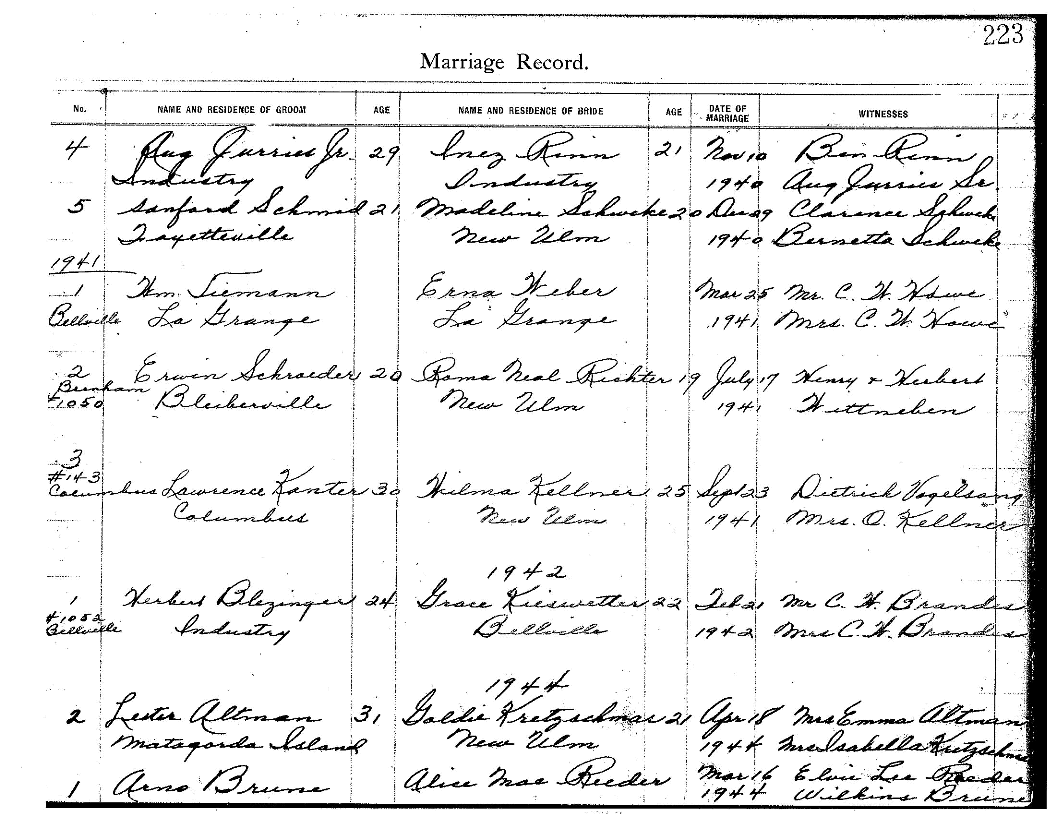 223
Marriage Record.
No. NAME AND RESIDENCE OF GROOM AGE NAME AND RESIDENCE OF BRIDE AGE DATE OF MARRIAGE WITNESSES
4 Aug Jurries Jr. 29 Inez Rinn 21 Nov 10 Ben Rinn
Industry Industry 1940 Aug Jurries Sr.
5 Sanford Schmid 21 Madeline Schweke 20 Dec 29 Clarence Schweke
Fayetteville New Ulm 1940 Bernetta Schweke
1941
1 Wm. Tiemann Erna Weber Mar 25 Mr. C. W. Howe
Bellville La Grange La Grange 1941 Mrs. C. W. Howe
2 Erwin Schroeder 20 Roma Neal Richter 19 July 17 Henry + Herbert
Brenham
#1050 Bleiberville New Ulm 1941 Wittneben
3
#143
Columbus Lawrence Kanter 30 Wilma Kellner 25 Sept 23 Dietrich Vogelsang
Columbus New Ulm 1941 Mrs. O. Kellner
1942
1 Herbert Blezinger 24 Grace Kieswetter 22 Feb 21 Mr C. H. Brandes
#1052
Bellville Industry Bellville 1942 Mrs C. H. Brandes
1944
2 Lester Altman 31 Goldie Kretzschmar 21 Apr 18 Mrs Emma Altman
Matagorda Island New Ulm 1944 Mrs Isabella Kretzschmar
1 Arno Brune Alice Mae Reeder Mar 16 Elvie Lee Reeder
1944 Wilkins Brune